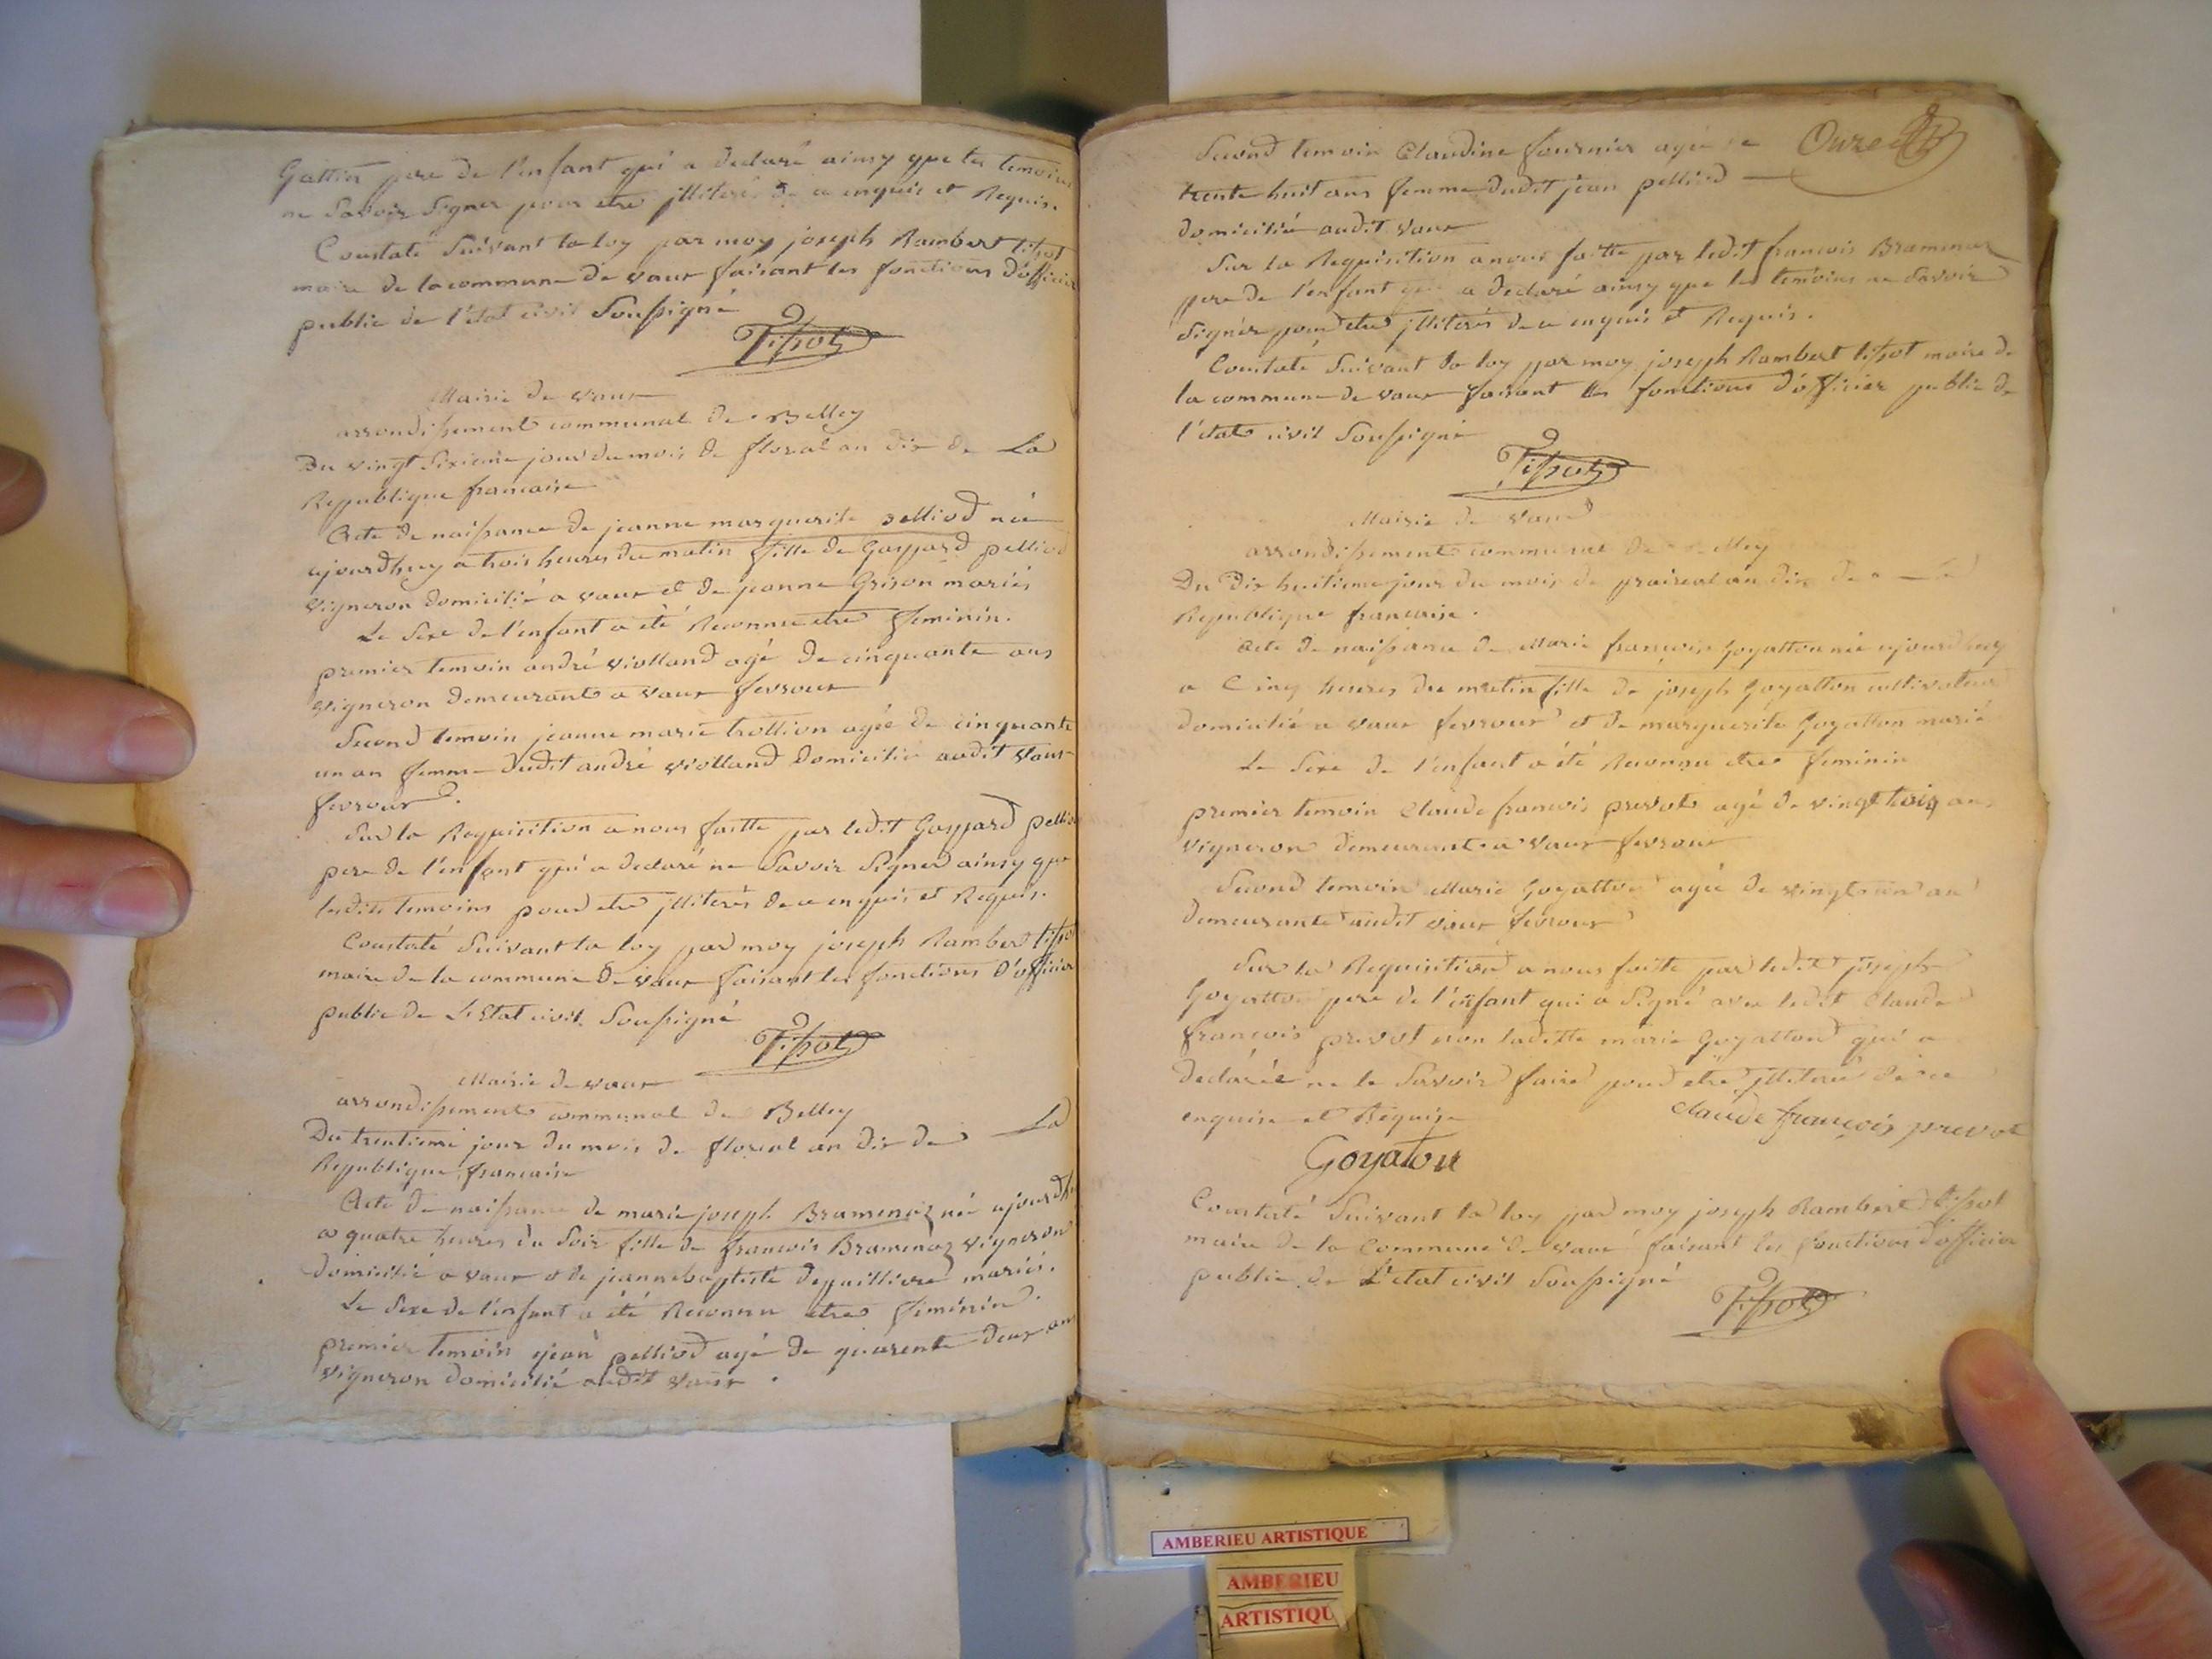 Gattin pere de l'enfant qui a declaré ainsy que les temoins
ne Savoir Signer pour etre jlliteré de ce enquis et Requis.
Constaté Suivant la loy par moy joseph Rambert tissot
maire de la commune de vaux faisant les fonctions d'officier
public de l'état civil Soussigné
Tissot
Mairie de vaux
arrondissement communal de Belley
Du vingt Sixieme jour du mois de floreal an dix de La
Republique francaise
Acte de naissance de jeanne marguerite pelliod née
ajourdhuy a trois heures du matin fille de Gaspard pelliod
vigneron domicilié a vaux et de jeanne Grison mariés
Le Sexe de l'enfant a été Reconnu etre feminin.
premier temoin andré violland agé de cinquante ans
vigneron demeurant a vaux fevroux
Second temoin jeanne marie trollion agée de cinquante
un an femme dudit andré violland Domiciliée audit vaux
fevroux.
Sur la Requisition a nous faitte par ledit Gaspard pelliod
pere de l'enfant qui a declaré ne Savoir Signer ainsy que
lesdits temoins pour etre jlliterés de ce enquis et Requis.
Constaté Suivant la loy par moy joseph Rambert tissot
maire de la commune de vaux faisant les fonctions d'officier
public de L'Etat civil Soussigné
Tissot
Mairie de vaux
arrondissement communal de Belley
Du trentieme jour du mois de floreal an dix de La
Republique francaise
Acte de naissance de marie joseph Bramenaz née ajourdhuy
a quatre heures du Soir fille de francois Bramenaz vigneron
domicilié a vaux et de jeanne baptiste depailliere mariés.
Le Sexe de l'enfant a été Reconnu etre feminin.
premier temoin jean pelliod agé de quarente deux ans
vigneron domicilié audit vaux.
Second temoin Claudine fournier agée de Onze
trente huit ans femme dudit jean pelliod
domiciliée audit vaux
Sur la Requisition a nous faitte par ledit francois Bramenaz
pere de l'enfant qui a declaré ainsy que les temoins ne Savoir
Signer pour etre jlliterés de ce enquis et Requis.
Constaté Suivant la loy par moy joseph Rambert tissot maire de
la commune de vaux faisant les fonctions d'officier public de
l'etat civil Soussigné
Tissot
Mairie de vaux
arrondissement communal de Belley
Du Dix huitieme jour du mois de praireal an dix de La
Republique francaise.
Acte de naissance de Marie francoise Goyatton née ajourdhuy
a Cinq heures du matin fille de joseph Goyatton cultivateur
domicilié a vaux fevroux et de marguerite Goyatton mariés
Le Sexe de l'enfant a été Reconnu etre feminin
premier temoin Claude francois prevot agé de vingt trois ans
vigneron demeurant a vaux fevroux
Second temoin Marie Goyatton agée de vingt un an
demeurante audit vaux fevroux
Sur la Requisition a nous faitte par ledit joseph
Goyatton pere de l'enfant qui a Signé avec ledit Claude
francois prevot non laditte marie Goyatton qui a
declarée ne le Savoir faire pour etre jlliterée de ce
enquise et Requise
claude françois prevot
Goyaton
Constaté Suivant la loy par moy joseph Rambert tissot
maire de la Commune de vaux faisant les fonctions d'officier
public de L'etat civil Soussigné
Tissot
AMBERIEU ARTISTIQUE
AMBERIEU
ARTISTIQU